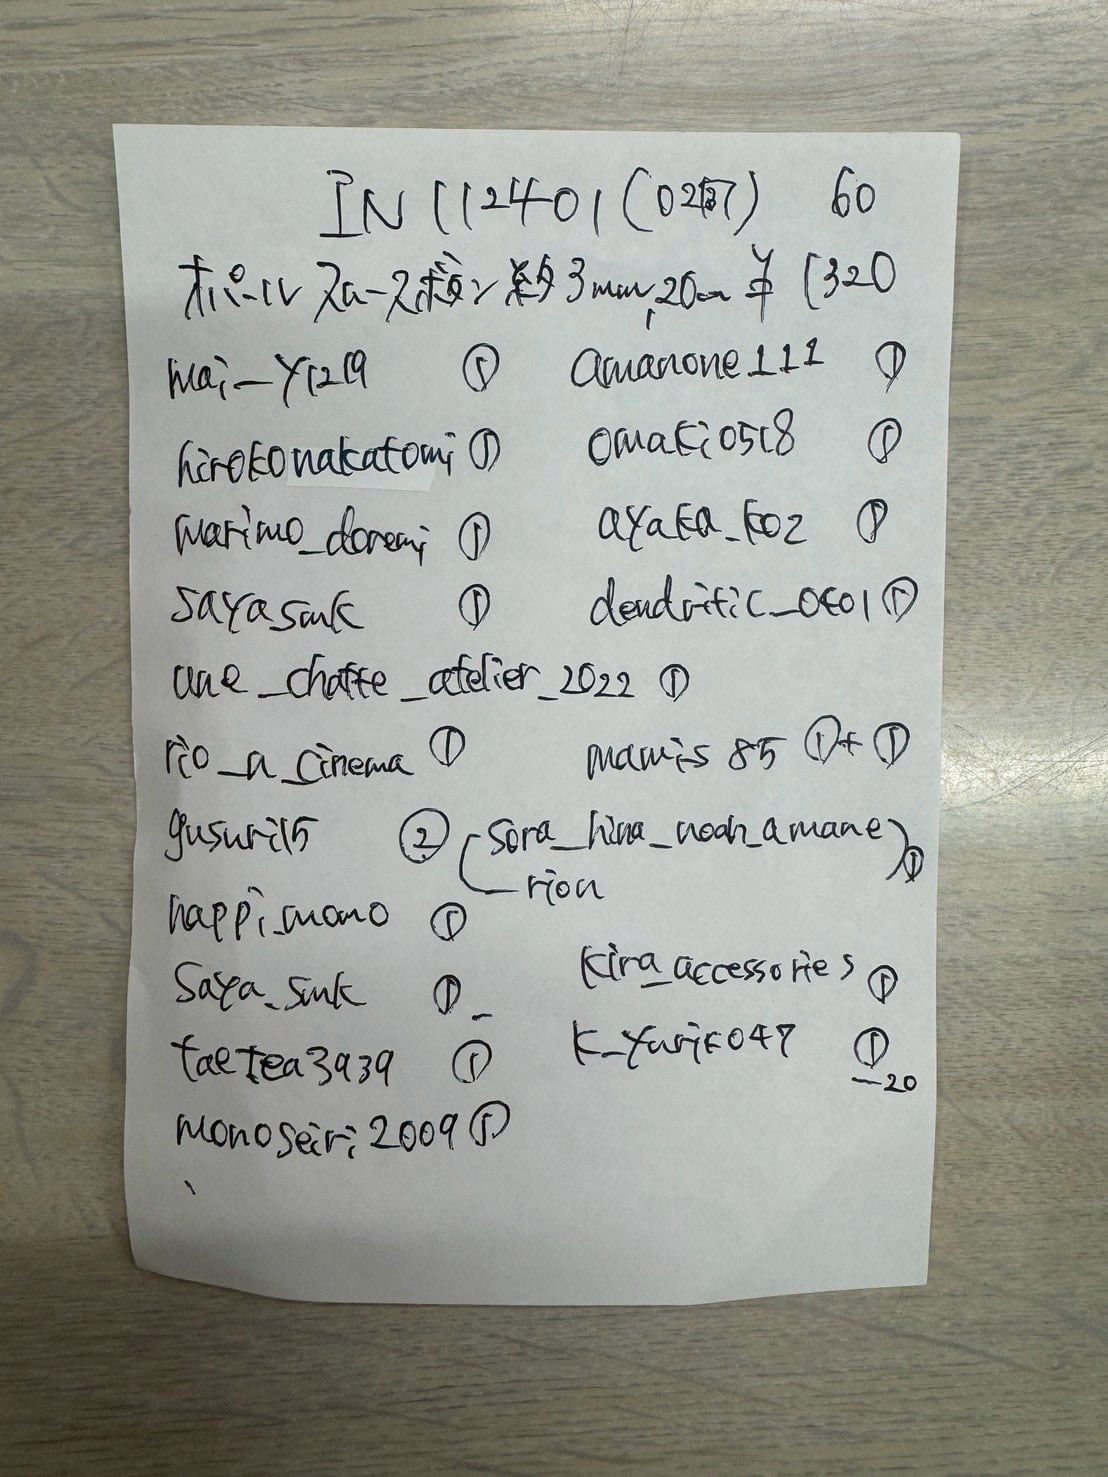 IN112401(0237) 60
オパール スムースボタン 約3mm,20cm ¥1320
mai_y1219 ① amanone111 ①
hirokonakatomi ① omaki0518 ①
marimo_doremi ① ayaka_ko2 ①
sayasmk ① dendritic_0401 ①
une_chatte_atelier_2022 ①
rio_a_cinema ① mamis85 ①+①
gusuri15 ② (sora_hina_noah_amane) ①
rion
happi_mono ①
kira_accessories ①
saya_smk ①
k_yuriko047 ①
taetea3939 ①
20
monoseiri2009 ①